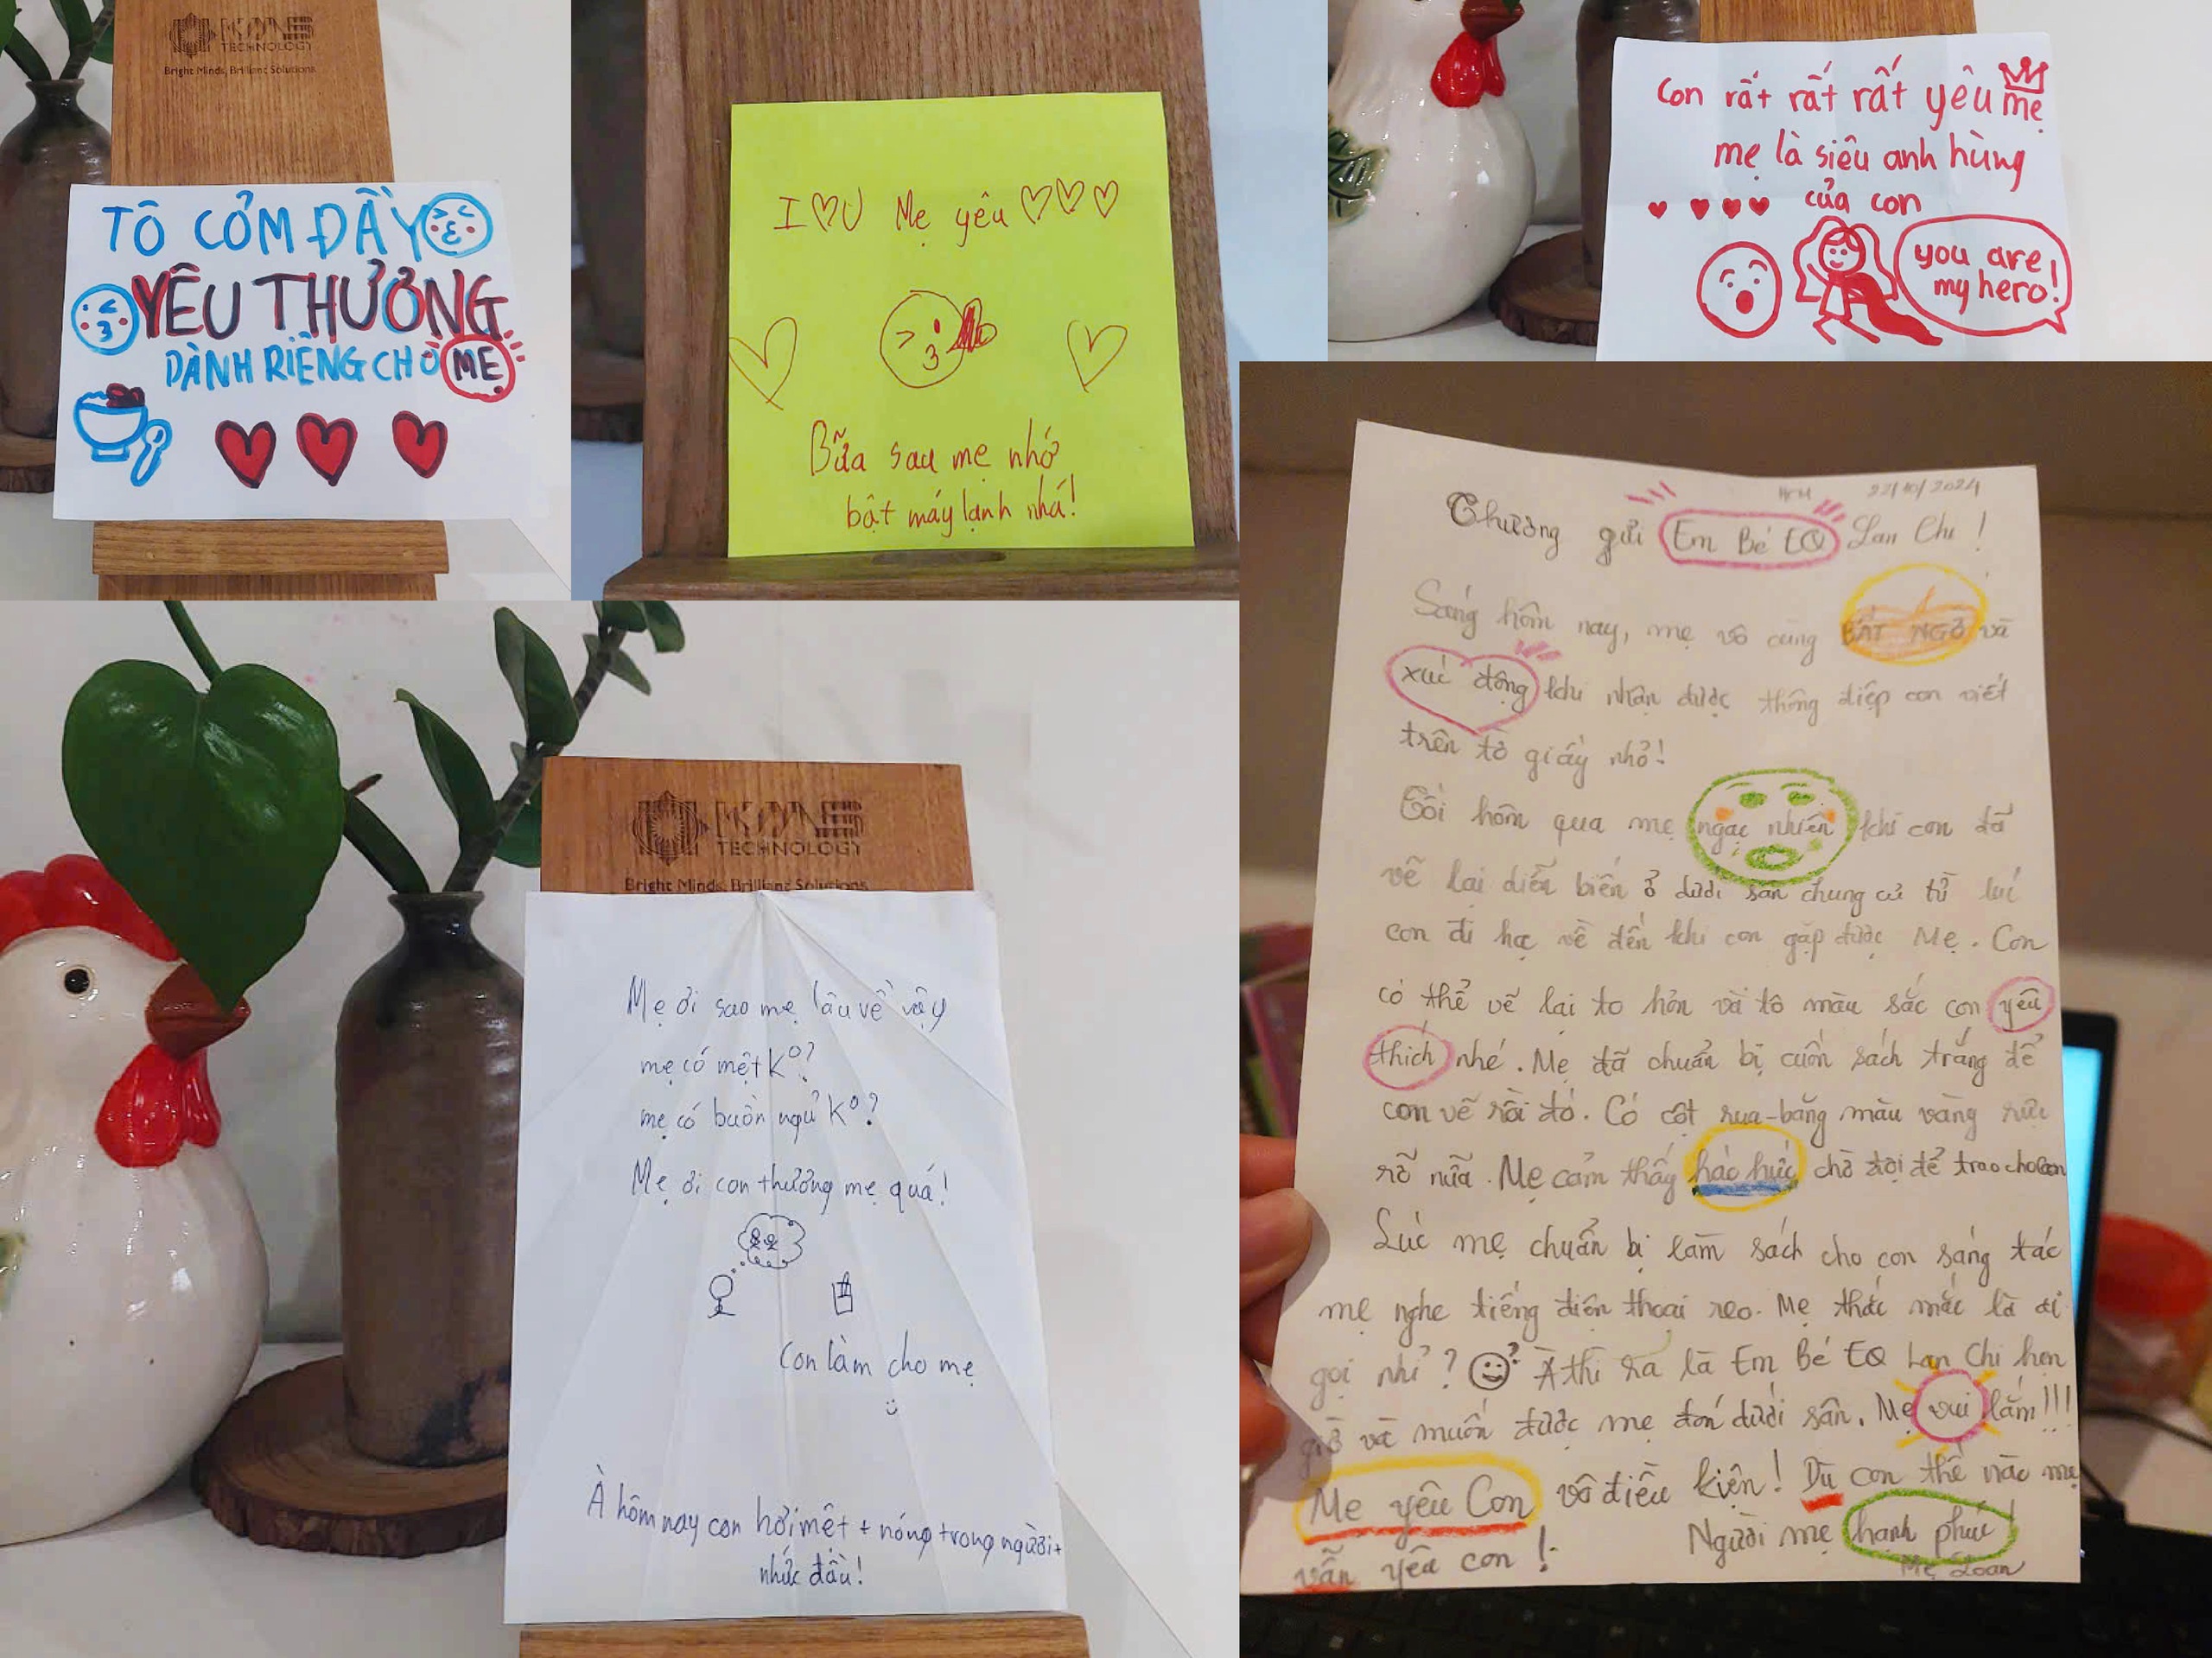 KONS
TECHNOLOGY
Bright Minds, Brilliant Solutions
TÔ CƠM ĐẦY
YÊU THƯƠNG
DÀNH RIÊNG CHO MẸ
I ♡ U Mẹ yêu ♡♡♡
Bữa sau mẹ nhớ
bật máy lạnh nhá!
Con rất rất rất yêu mẹ
mẹ là siêu anh hùng
của con
you are
my hero!
KONS
TECHNOLOGY
Bright Minds, Brilliant Solutions
Mẹ ơi sao mẹ lâu về vậy
mẹ có mệt K⁰?
mẹ có buồn ngủ K⁰?
Mẹ ơi con thương mẹ quá!
Con làm cho mẹ
À hôm nay con hơi mệt + nóng trong người +
nhức đầu!
HCM 22/10/2024
Thương gửi Em Bé EQ Lan Chi!
Sáng hôm nay, mẹ vô cùng BẤT NGỜ và
xúc động khi nhận được thông điệp con viết
trên tờ giấy nhỏ!
Tối hôm qua mẹ ngạc nhiên khi con đã
vẽ lại diễn biến ở dưới sân chung cư từ lúc
con đi học về đến khi con gặp được Mẹ. Con
có thể vẽ lại to hơn và tô màu sắc con yêu
thích nhé. Mẹ đã chuẩn bị cuốn sách trắng để
con vẽ rồi đó. Có cột rua-băng màu vàng rực
rỡ nữa. Mẹ cảm thấy háo hức chờ đợi để trao cho con
Lúc mẹ chuẩn bị làm sách cho con sáng tác
mẹ nghe tiếng điện thoại reo. Mẹ thắc mắc là ai
gọi nhỉ? À thì ra là Em Bé EQ Lan Chi hẹn
giờ và muốn được mẹ đón dưới sân. Mẹ vui lắm!!!
Mẹ yêu Con vô điều kiện! Dù con thế nào mẹ
vẫn yêu con!
Người mẹ hạnh phúc!
Mẹ Loan